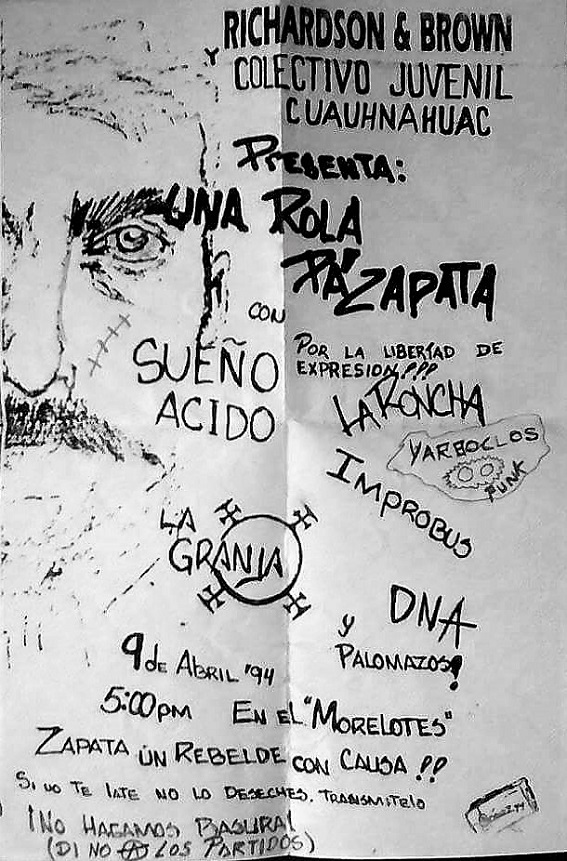 RICHARDSON & BROWN
Y COLECTIVO JUVENIL
CUAUHNAHUAC
PRESENTA:
UNA ROLA
PA' ZAPATA
CON
POR LA LIBERTAD DE
EXPRESION!!!
SUEÑO
ACIDO
LA RONCHA
YARBOCLOS
PUNK
IMPROBUS
LA
GRANJA
DNA
y
PALOMAZOS!
9 de ABRIL '94
5:00pm EN EL "MORELOTES"
ZAPATA UN REBELDE CON CAUSA!!
SI NO TE LATE NO LO DESECHES. TRANSMITELO
¡NO HAGAMOS BASURA!
(DI NO A LOS PARTIDOS)